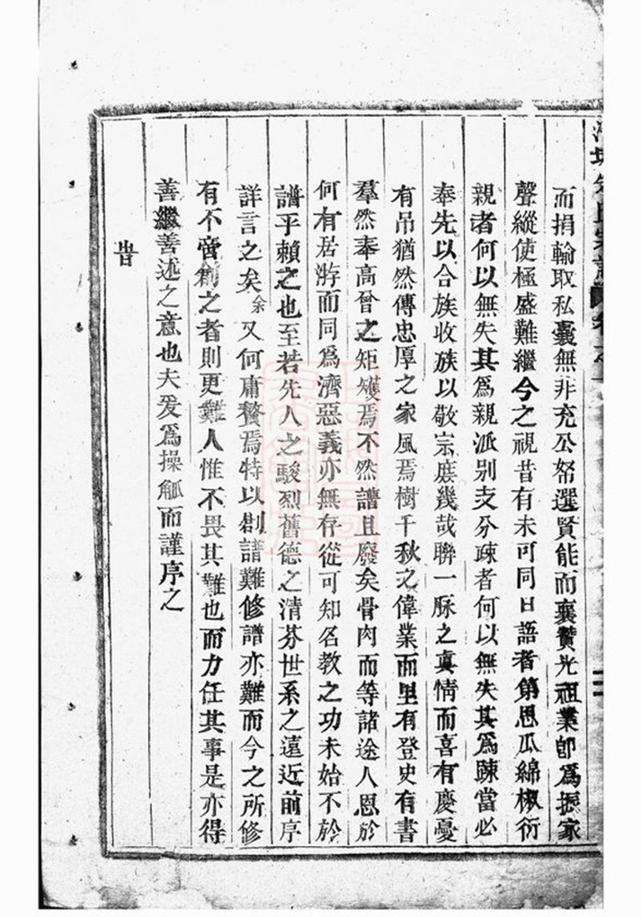 而捐輸取私囊無非充公帑選賢能而襄贊光祖業卽爲振家
聲縱使極盛難繼今之視昔有未可同日語者第思瓜綿椒衍
親者何以無失其爲親派别支分疎者何以無失其爲踈當必
奉先以合族收族以敬宗庻幾哉聯一脉之真情而喜有慶憂
有吊猶然傳忠厚之家風焉樹千秋之偉業而里有登史有書
羣然奉高曾之矩矱焉不然譜且廢矣骨肉而等諸途人恩於
何有居游而同爲濟惡義亦無存從可知名教之功未始不於
譜乎賴之也至若先人之駿烈舊德之清芬世系之遠近前序
詳言之矣余又何庸贅焉特以創譜難修譜亦難而今之所修
有不啻創之者則更難人惟不畏其難也而力任其事是亦得
善繼善述之意也夫爰爲操觚而謹序之
旹